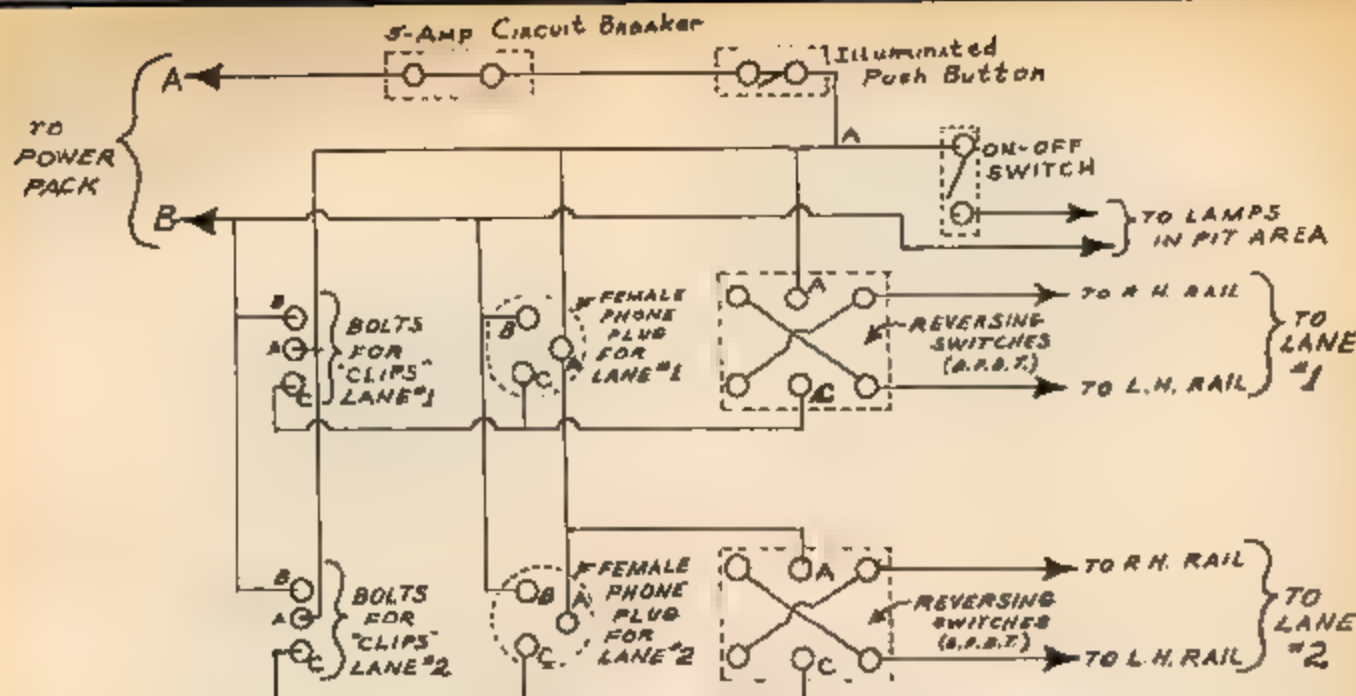 5-Amp Circuit Breaker
Illuminated
Push Button
A
TO
POWER
PACK
A
ON-OFF
SWITCH
B
TO LAMPS
IN PIT AREA
B
A
C
BOLTS
FOR
"CLIPS"
LANE #1
B
A
C
FEMALE
PHONE
PLUG
FOR
LANE #1
A
C
REVERSING
SWITCHES
(D.P.D.T.)
TO R.H. RAIL
TO L.H. RAIL
TO
LANE
#1
B
A
C
BOLTS
FOR
"CLIPS"
LANE #2
B
A
C
FEMALE
PHONE
PLUG
FOR
LANE #2
A
C
REVERSING
SWITCHES
(D.P.D.T.)
TO R.H. RAIL
TO L.H. RAIL
TO
LANE
#2